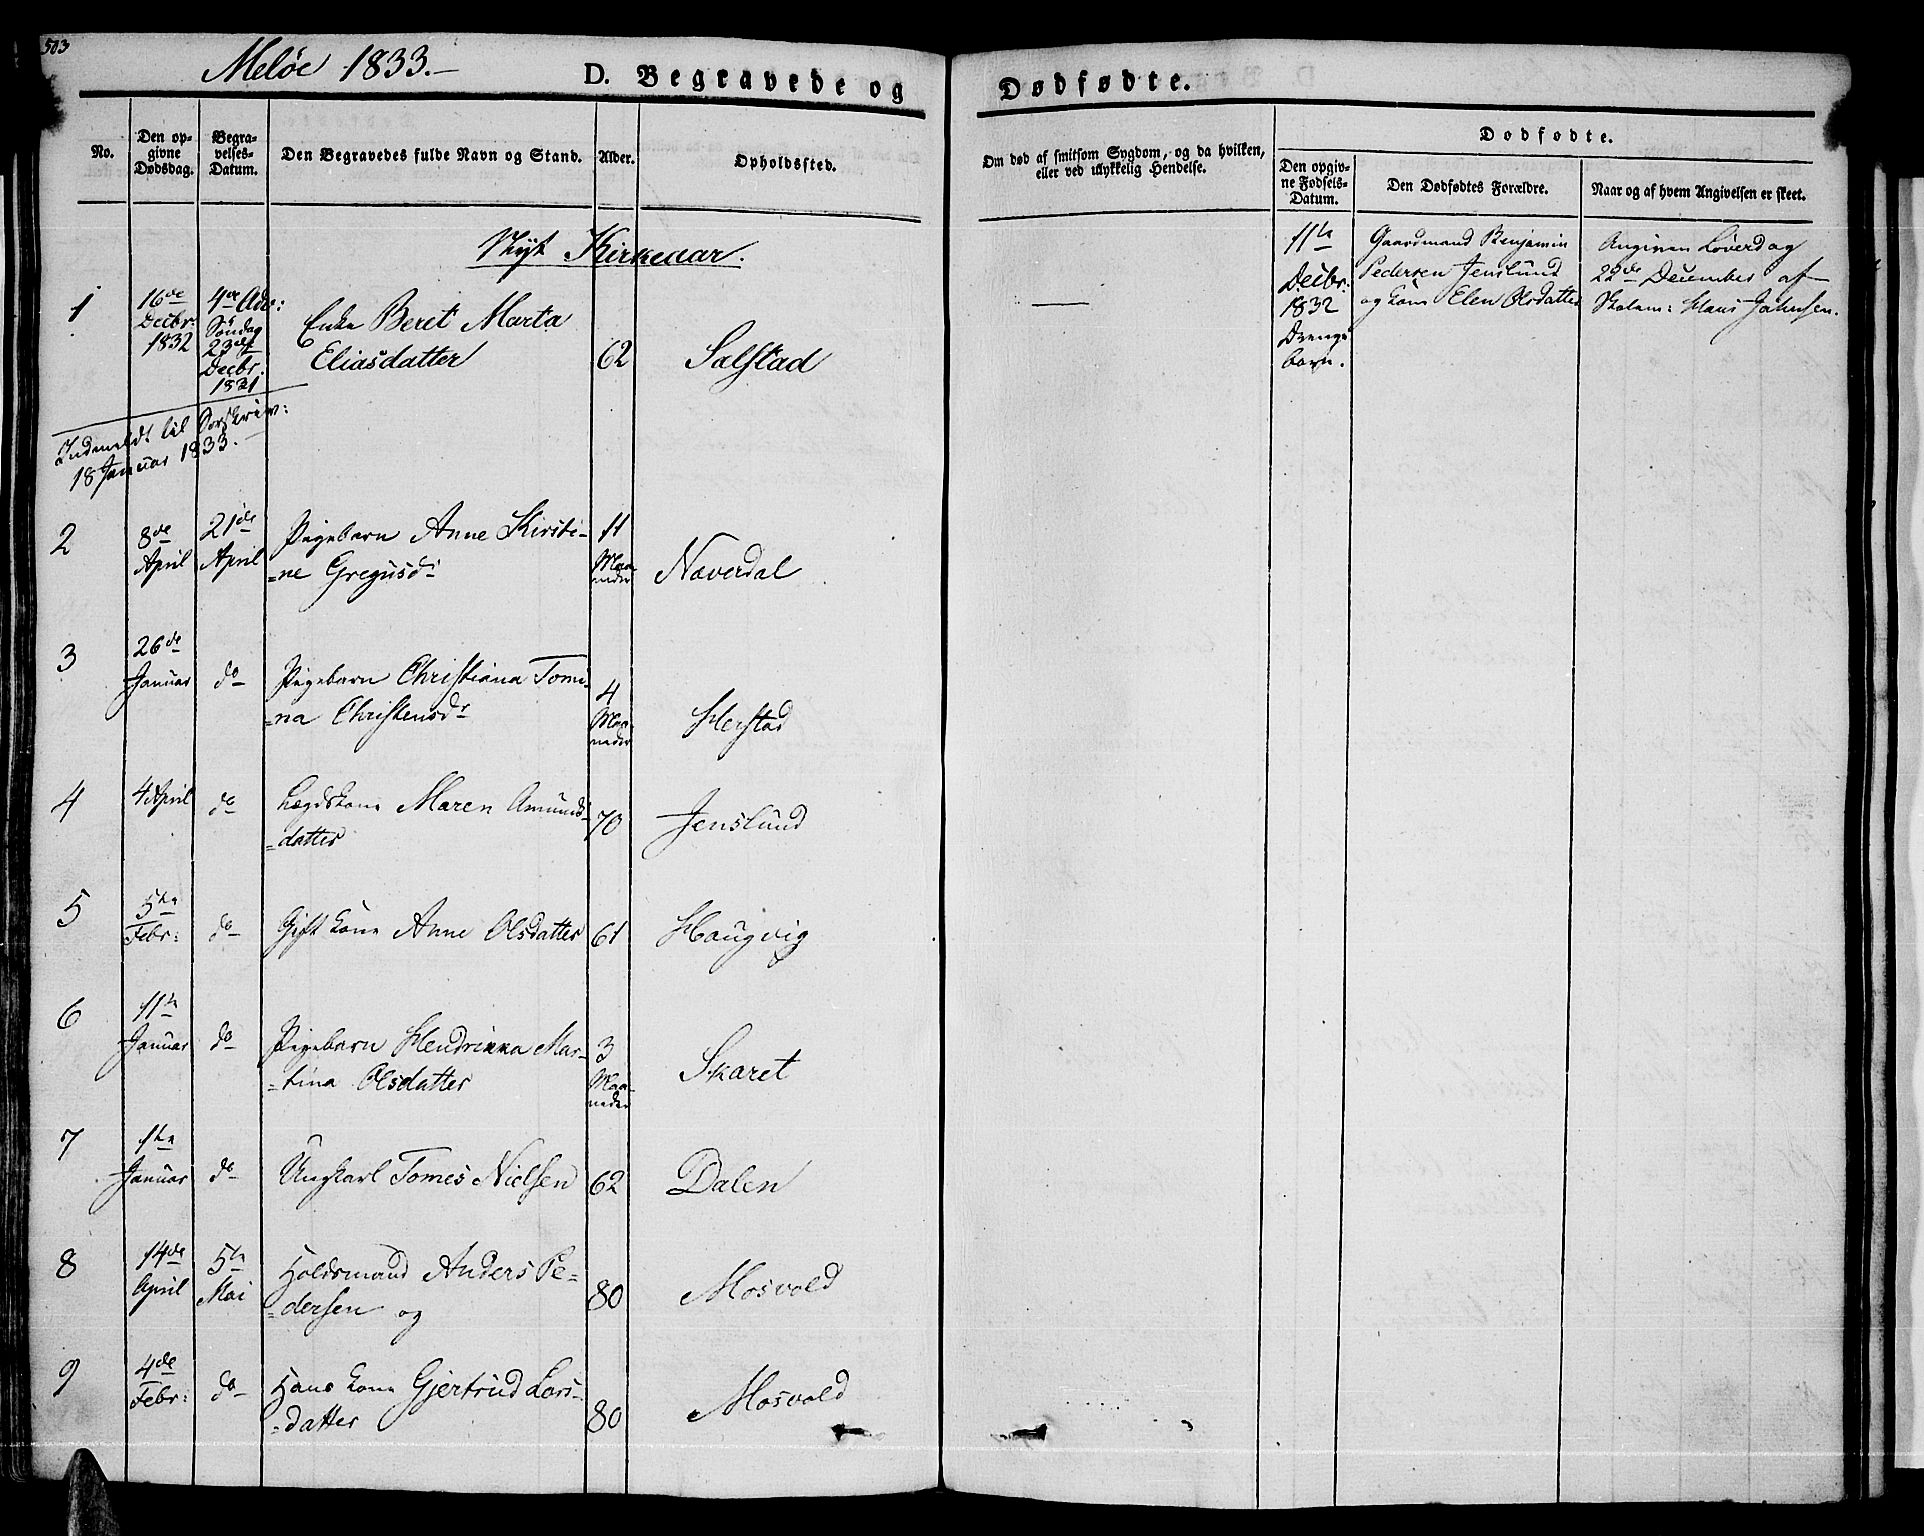 503
Meløe 1833.
D. Begravede og
Dødfødte.
No.
Den op-
givne
Dødsdag.
Begra-
velses-
Datum.
Den Begravedes fulde Navn og Stand.
Alder.
Opholdssted.
Om død af smitsom Sygdom, og da hvilken,
eller ved ulykkelig Hendelse.
Dødfødte.
Den opgiv-
ne Fødsels-
Datum.
Den Dødfødtes Forældre.
Naar og af hvem Angivelsen er skeet.
Nyt Kirkeaar.
1
16de
Decbr.
1832
4de Adv:
Søndag
23de
Decbr.
1831
Enke Beret Marta
Eliasdatter
62
Salstad
11te
Decbr.
1832
Drenge
barn.
Gaardmand Benjamin
Pedersen Jenslund
og kone Elen Olsdatter
Angiven Løverdag
22de December af
Skolem: Hans Jahnsen.
Indmeldt til Sorskriv:
18 Januar 1833.
2
8de
April
21de
April
Pigebarn Anne Kirsti-
=ne Gregusdr
11
Maa-
neder
Næverdal
3
26de
Januar
do
Pigebarn Christiana Tomi-
=na Christensdr
4
Maa-
neder
Herstad
4
4 April
do
Lægdskone Maren Amunds-
=datter
70
Jenslund
5
5te
Febr:
do
Gift kone Anne Olsdatter
61
Haugvig
6
11te
Januar
do
Pigebarn Hendrikka Mar-
=tina Olsdatter
3
Maa-
neder
Skaret
7
1te
Januar
do
Ungkarl Tomes Nielsen
62
Dalen
8
14de
April
5te
Mai
Holdsmand Anders Pe-
=dersen og
80
Mosvold
9
4de
Febr:
do
Hans kone Gjertrud Lars-
=datter
80
Mosvold